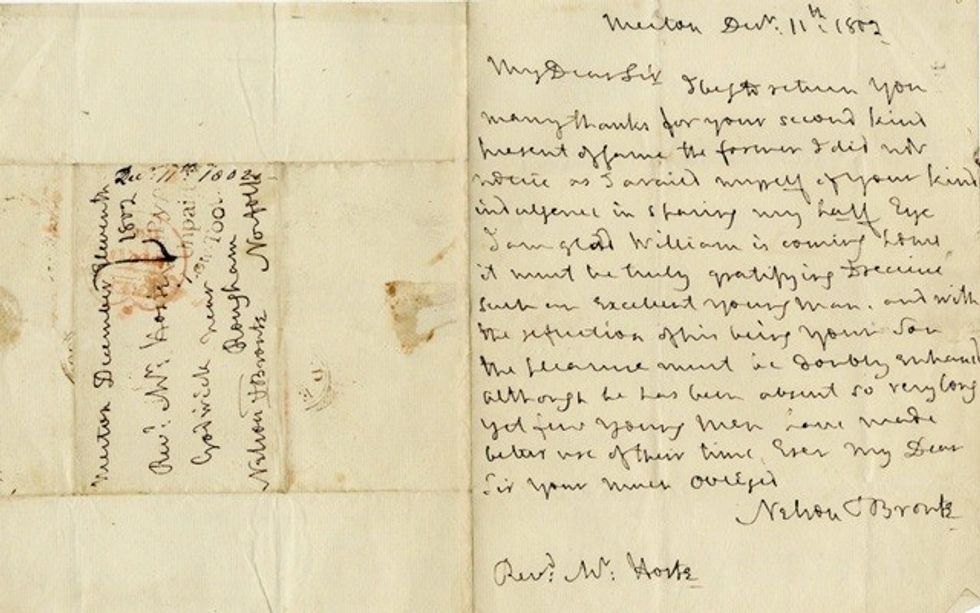 Merton December Eleventh
1802
Dec.r 11th 1802
Rev.d Mr. Hoste
Unpaid
Godwick near
Rougham
Norfolk
Nelson & Bronte
Merton Decr. 11th: 1802
My Dear Sir
I beg to return You
many thanks for your second kind
present of Game the former I did not
notice as I availd myself of Your kind
indulgence in sparing my half Eye
I am glad William is coming home
it must be truly gratifying to receive
such an Excellent Young Man. and with
the reflection of his being Your Son
the pleasure must be doubly enhanced
although he has been absent so very long
yet few Young Men have made
better use of their time. Ever My Dear
Sir Your much Obliged
Nelson & Bronte
Revd. Mr: Hoste